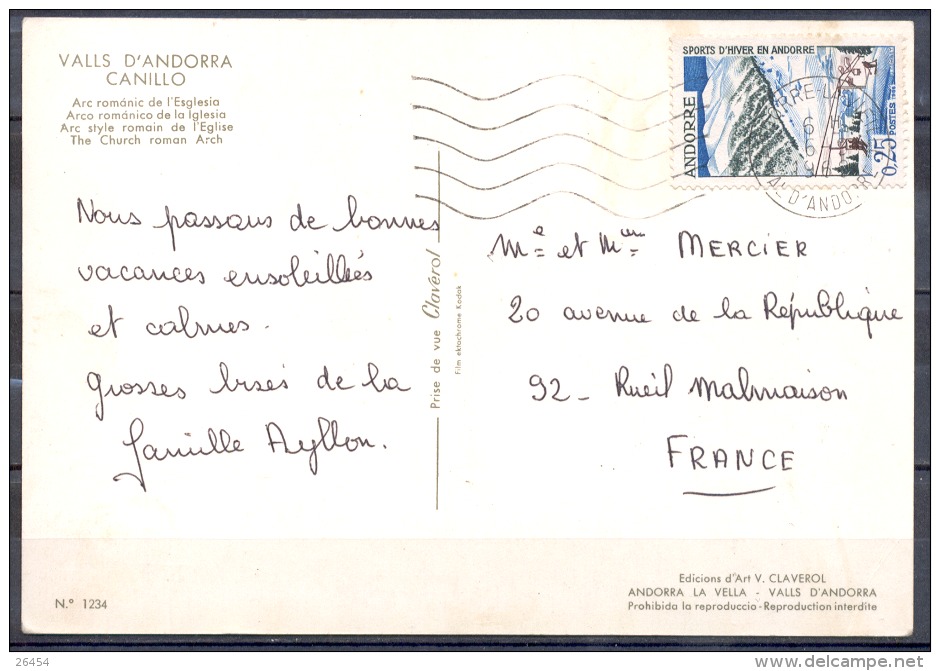 VALLS D'ANDORRA
CANILLO
Arc románic de l'Esglesia
Arco románico de la Iglesia
Arc style romain de l'Eglise
The Church roman Arch
Nous passons de bonnes
vacances ensoleillées
et calmes.
Grosses bises de la
famille Ayllon.
N.º 1234
Prise de vue Clavérol
Film ektachrome Kodak
SPORTS D'HIVER EN ANDORRE
ANDORRE
0,25 POSTES 1966
6 H
6
D'ANDORRE
Me et Mr MERCIER
20 avenue de la République
92 - Rueil Malmaison
FRANCE
Edicions d'Art V. CLAVEROL
ANDORRA LA VELLA - VALLS D'ANDORRA
Prohibida la reproduccio - Reproduction interdite
26454
delcampe.net